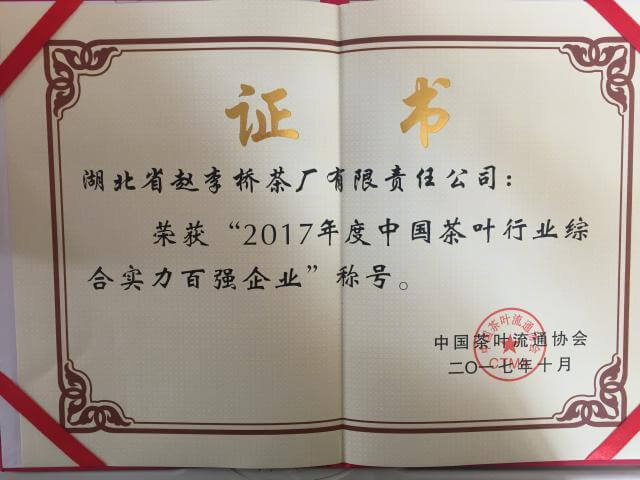 证书
湖北省赵李桥茶厂有限责任公司：
荣获“2017年度中国茶叶行业综
合实力百强企业”称号。
中国茶叶流通协会
二〇一七年十月
中国茶叶流通协会
CTMA